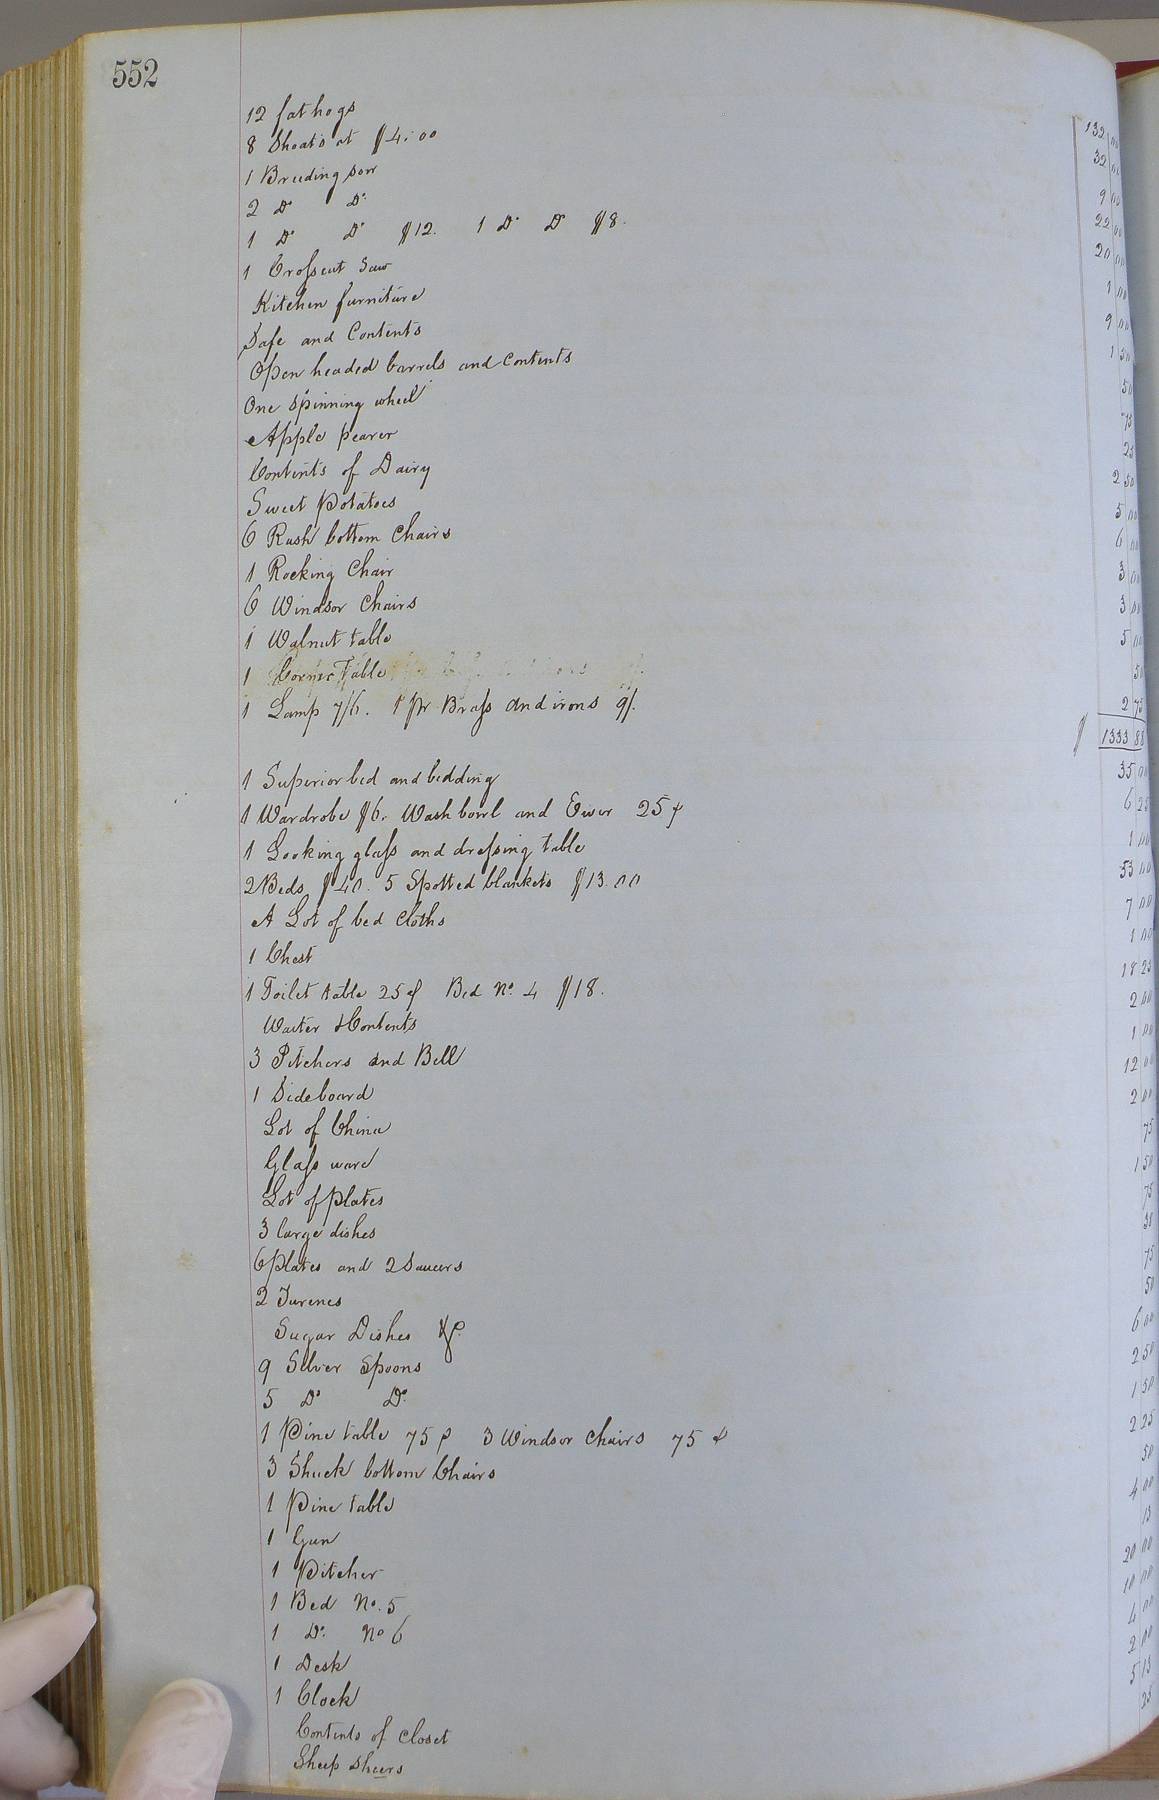 552
12 fat hogs 132 00
8 Shoats at $4.00 32 00
1 Breeding sow 9 00
2 Do Do 22 00
1 Do Do $12. 1 Do Do $8. 20 00
1 Crosscut saw 1 00
Kitchen furniture 9 00
Safe and Contents 1 50
Open headed barrels and contents 50
One Spinning wheel 75
Apple pearer 25
Contents of Dairy 2 50
Sweet Potatoes 5 00
6 Rush bottom Chairs 6 00
1 Rocking Chair 3 00
6 Windsor Chairs 3 00
1 Walnut table 5 00
1 Corner Table 50
1 Lamp 7/6. 1 pr Brass Andirons 9/. 2 75
$ 1333 88
1 Superior bed and bedding 35 00
1 Wardrobe $6. Wash bowl and Ewer 25¢ 6 25
1 Looking glass and dressing table 1 00
2 Beds $40. 5 Spotted blankets $13.00 53 00
A Lot of bed Cloths 7 00
1 Chest 1 00
1 Toilet table 25¢ Bed No. 4 $18. 18 25
Waiter & Contents 2 00
3 Pitchers and Bell 1 00
1 Sideboard 12 00
Lot of China 2 00
Glass ware 75
Lot of plates 1 50
3 large dishes 75
6 plates and 2 Saucers
2 Turenes 75
Sugar Dishes &c. 50
9 Silver Spoons 6 00
5 Do Do. 2 50
1 Pine table 75¢ 3 Windsor Chairs 75¢ 1 50
3 Shuck bottom Chairs 2 25
1 Pine table 50
1 Gun 4 00
1 Pitcher 13
1 Bed No. 5 20 00
1 Do. No 6 10 00
1 Desk 4 00
1 Clock 2 00
Contents of Closet 5 13
Sheep sheers 25